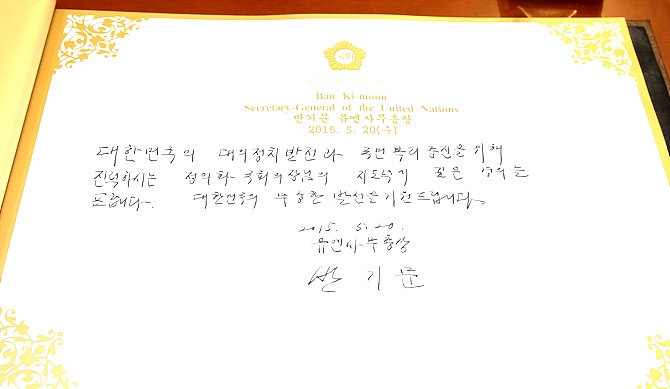 Ban Ki-moon
Secretary-General of the United Nations
반기문 유엔사무총장
2015. 5. 20(수)
대한민국의 대의정치 발전과 국민 복리 증진을 위해
진력하시는 정의화 국회의장님의 지도력에 깊은 경의를
표합니다. 대한민국의 무궁한 발전을 기원드립니다.
2015. 5. 20.
유엔사무총장
반기문